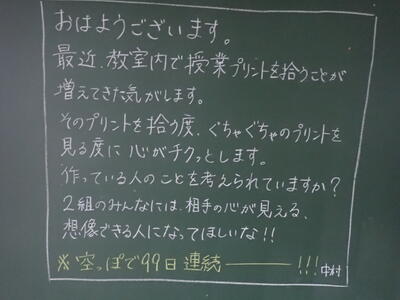 おはようございます。
最近、教室内で授業プリントを拾うことが
増えてきた気がします。
そのプリントを拾う度、ぐちゃぐちゃのプリントを
見る度に心がチクッとします。
作っている人のことを考えられていますか?
2組のみんなには、相手の心が見える、
想像できる人になってほしいな!!
※空っぽで99日連続――!!! 中村